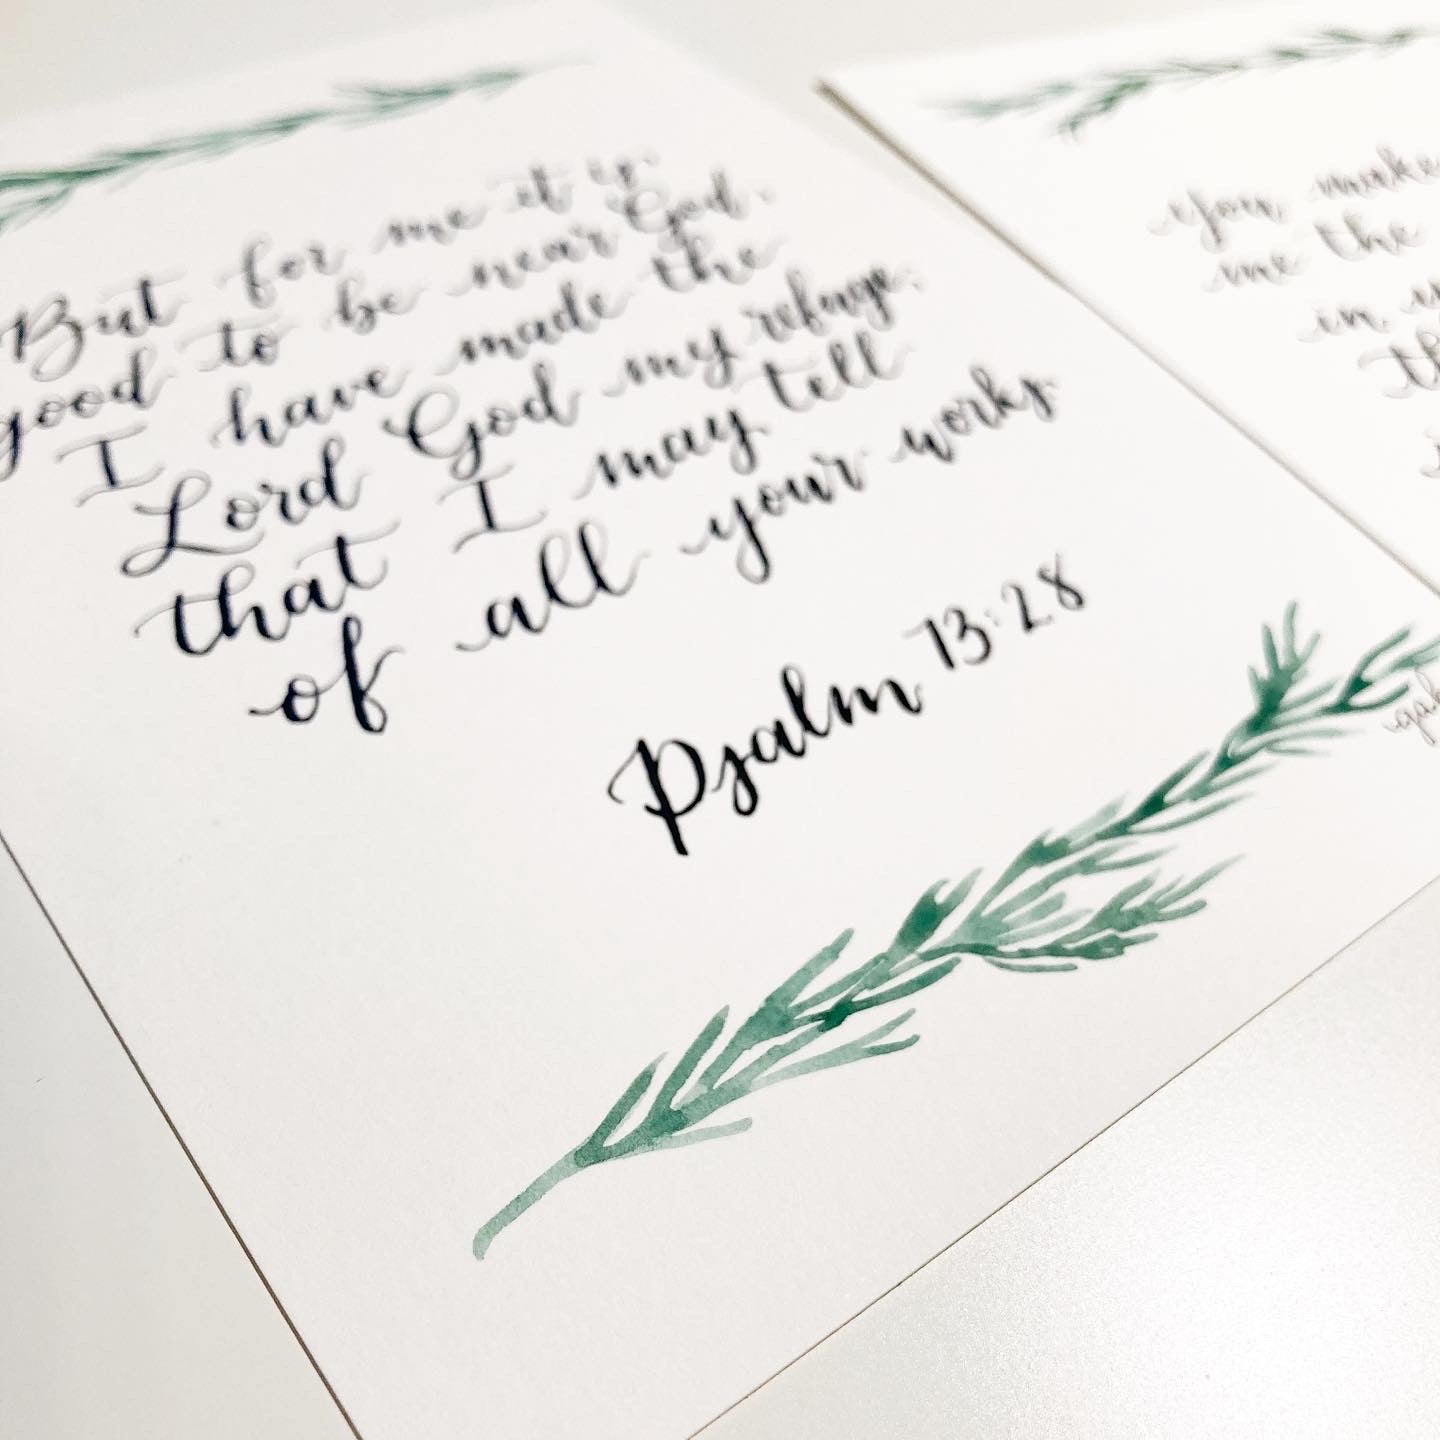 But for me it is
good to be near God.
I have made the
Lord God my refuge,
that I may tell
of all your works.
Psalm 73:28
you make
me the
in